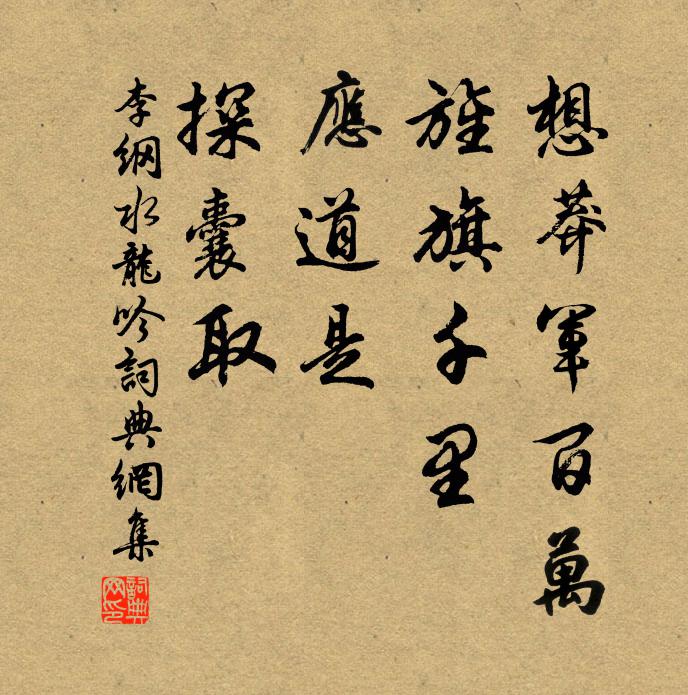 想莽軍百萬
旌旗千里
應道是
探囊取
李綱水龍吟詞典網集
詞典網印